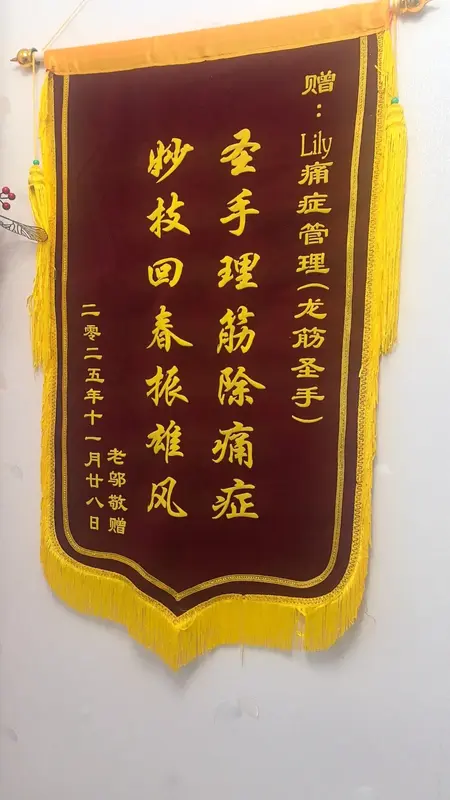 赠：Lily痛症管理(龙筋圣手)
圣手理筋除痛症
妙技回春振雄风
老邬敬赠
二零二五年十一月廿八日